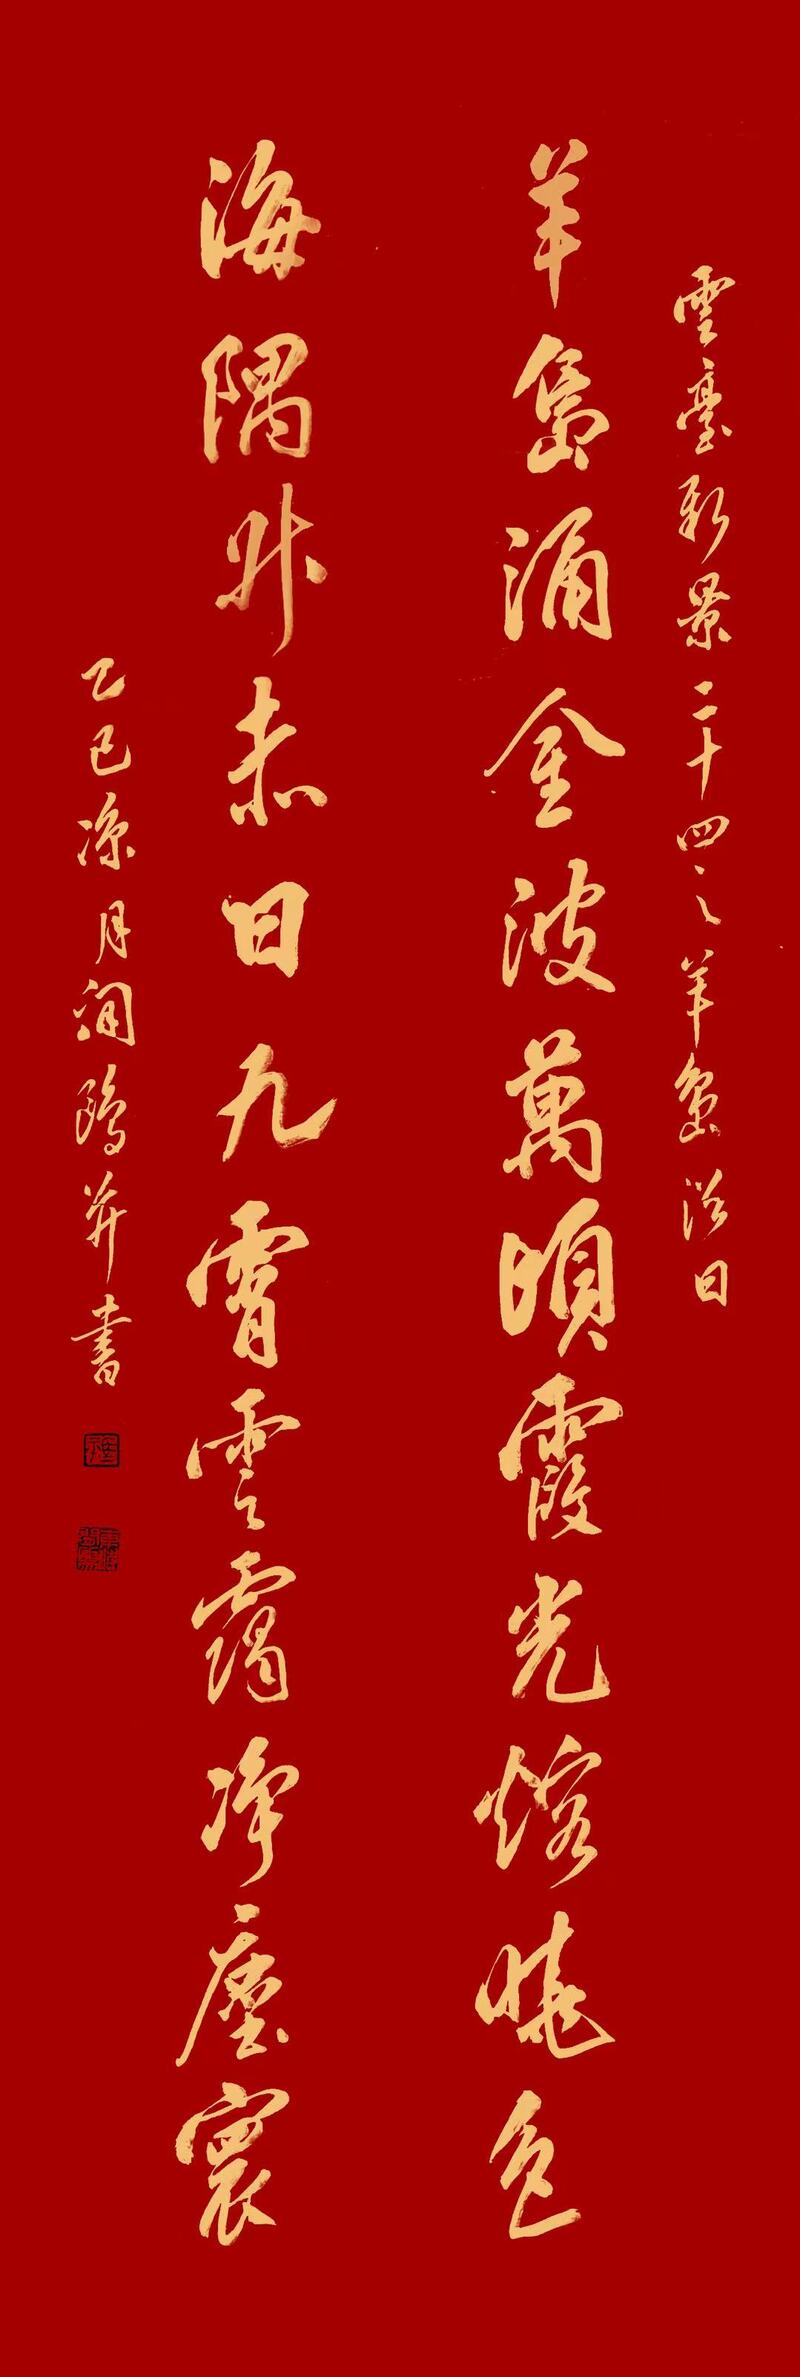 雲臺新景二十四之羊島浴日
羊島涌金波萬頃霞光熔曉色
海隅升赤日九霄雲靄净塵寰
乙巳凉月润鸿并書